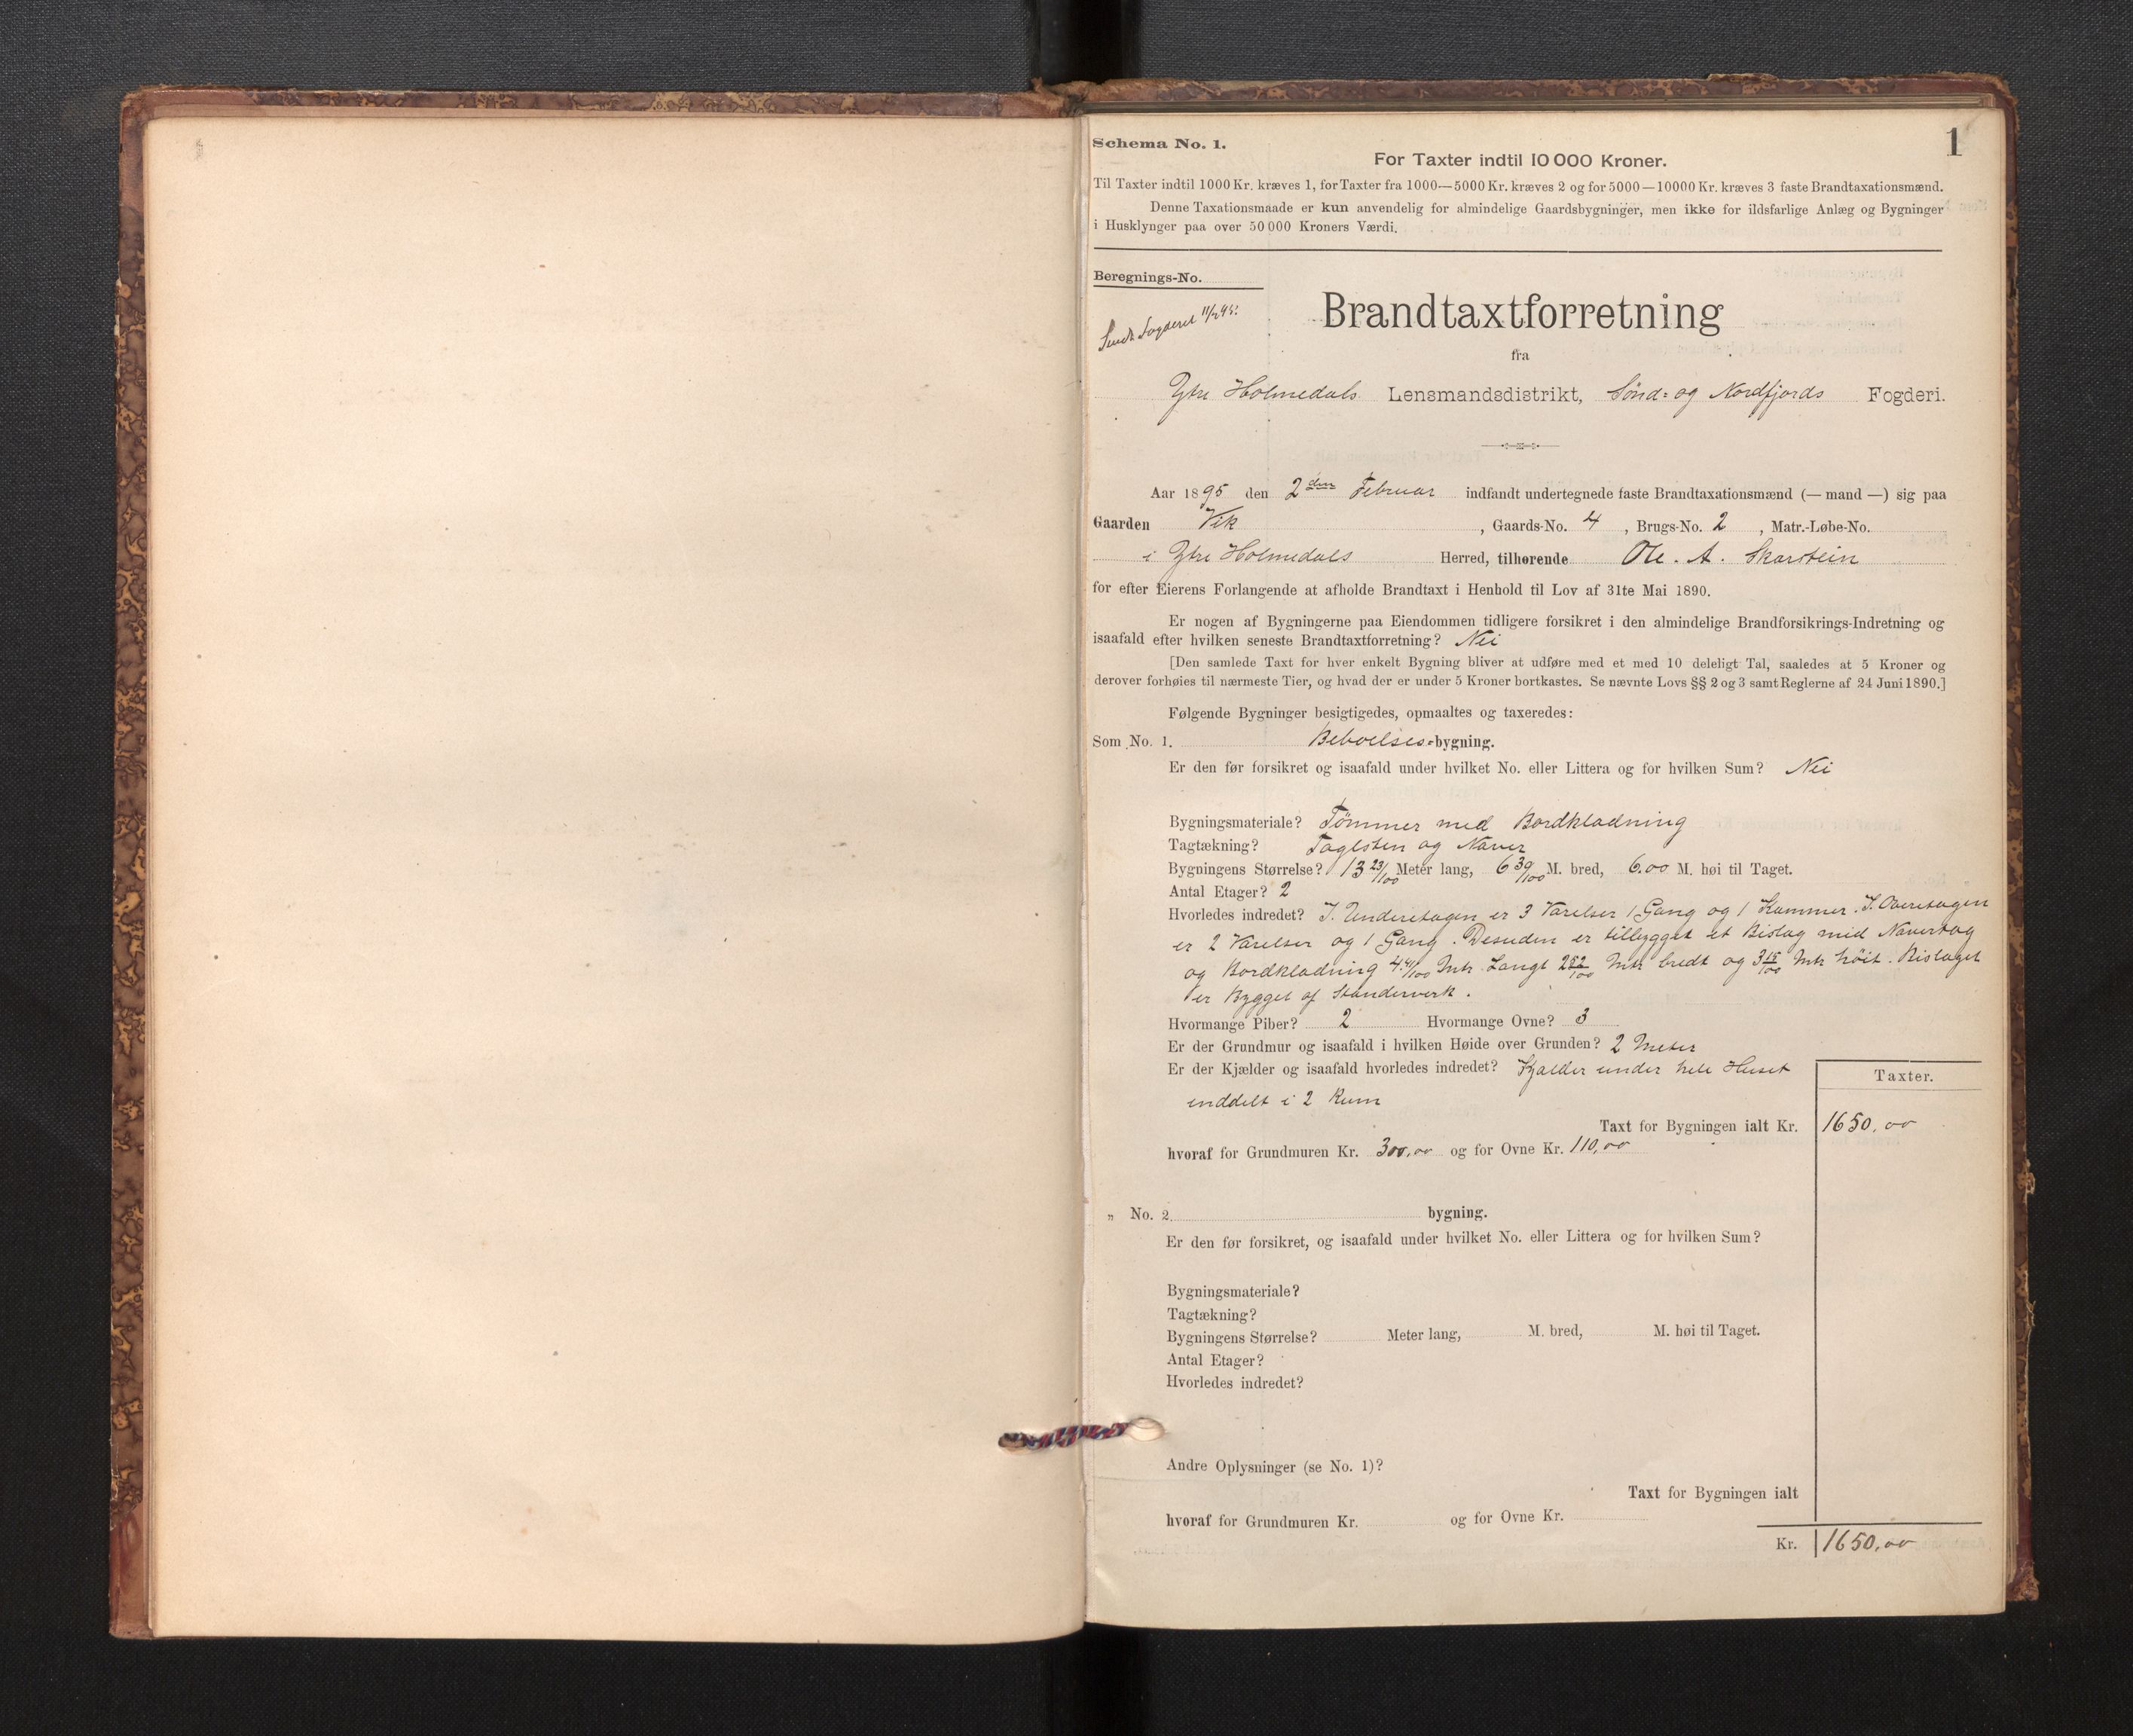 Schema No. 1.
1
For Taxter indtil 10 000 Kroner.
Til Taxter indtil 1000 Kr. kræves 1, for Taxter fra 1000—5000 Kr. kræves 2 og for 5000—10000 Kr. kræves 3 faste Brandtaxationsmænd.
Denne Taxationsmaade er kun anvendelig for almindelige Gaardsbygninger, men ikke for ildsfarlige Anlæg og Bygninger
i Husklynger paa over 50 000 Kroners Værdi.
Beregnings-No.
Sendt Fogderiet 11/2 95.
Brandtaxtforretning
fra
Ytre Holmedals Lensmandsdistrikt, Sønd- og Nordfjords Fogderi.
Aar 1895 den 2den Februar indfandt undertegnede faste Brandtaxationsmænd (— mand —) sig paa
Gaarden Vik , Gaards-No. 4 , Brugs-No. 2 , Matr.-Løbe-No.
i Ytre Holmedals Herred, tilhørende Ole. A. Skarstein
for efter Eierens Forlangende at afholde Brandtaxt i Henhold til Lov af 31te Mai 1890.
Er nogen af Bygningerne paa Eiendommen tidligere forsikret i den almindelige Brandforsikrings-Indretning og
isaafald efter hvilken seneste Brandtaxtforretning? Nei
[Den samlede Taxt for hver enkelt Bygning bliver at udføre med et med 10 deleligt Tal, saaledes at 5 Kroner og
derover forhøies til nærmeste Tier, og hvad der er under 5 Kroner bortkastes. Se nævnte Lovs §§ 2 og 3 samt Reglerne af 24 Juni 1890.]
Følgende Bygninger besigtigedes, opmaaltes og taxeredes:
Som No. 1. Beboelses-bygning.
Er den før forsikret og isaafald under hvilket No. eller Littera og for hvilken Sum? Nei
Bygningsmateriale? Tømmer med Bordklædning
Tagtækning? Taglsten og Næver
Bygningens Størrelse? 13 23/100 Meter lang, 6 39/100 M. bred, 6.00 M. høi til Taget.
Antal Etager? 2
Hvorledes indredet? I. Underetagen er 3 Værelser 1 Gang og 1 Kammer. I. Overetagen
er 2 Værelser og 1 Gang. Desuden er tilbygget et Bislag med Nævertag
og Bordklædning 4.41/100 Mtr. Langt 2 82/100 Mtr bredt og 3 15/100 Mtr høit. Bislaget
er Bygget af Standerverk.
Hvormange Piber? 2 Hvormange Ovne? 3
Er der Grundmur og isaafald i hvilken Høide over Grunden? 2 Meter
Er der Kjælder og isaafald hvorledes indredet? Kjælder under hele Huset
inddelt i 2 Rum
Taxter.
Taxt for Bygningen ialt Kr. 1650,00
hvoraf for Grundmuren Kr. 300,00 og for Ovne Kr. 110,00
„ No. 2. bygning.
Er den før forsikret, og isaafald under hvilket No. eller Littera og for hvilken Sum?
Bygningsmateriale?
Tagtækning?
Bygningens Størrelse? Meter lang, M. bred, M. høi til Taget.
Antal Etager?
Hvorledes indredet?
Andre Oplysninger (se No. 1)?
Taxt for Bygningen ialt
hvoraf for Grundmuren Kr. og for Ovne Kr.
Kr. 1650,00